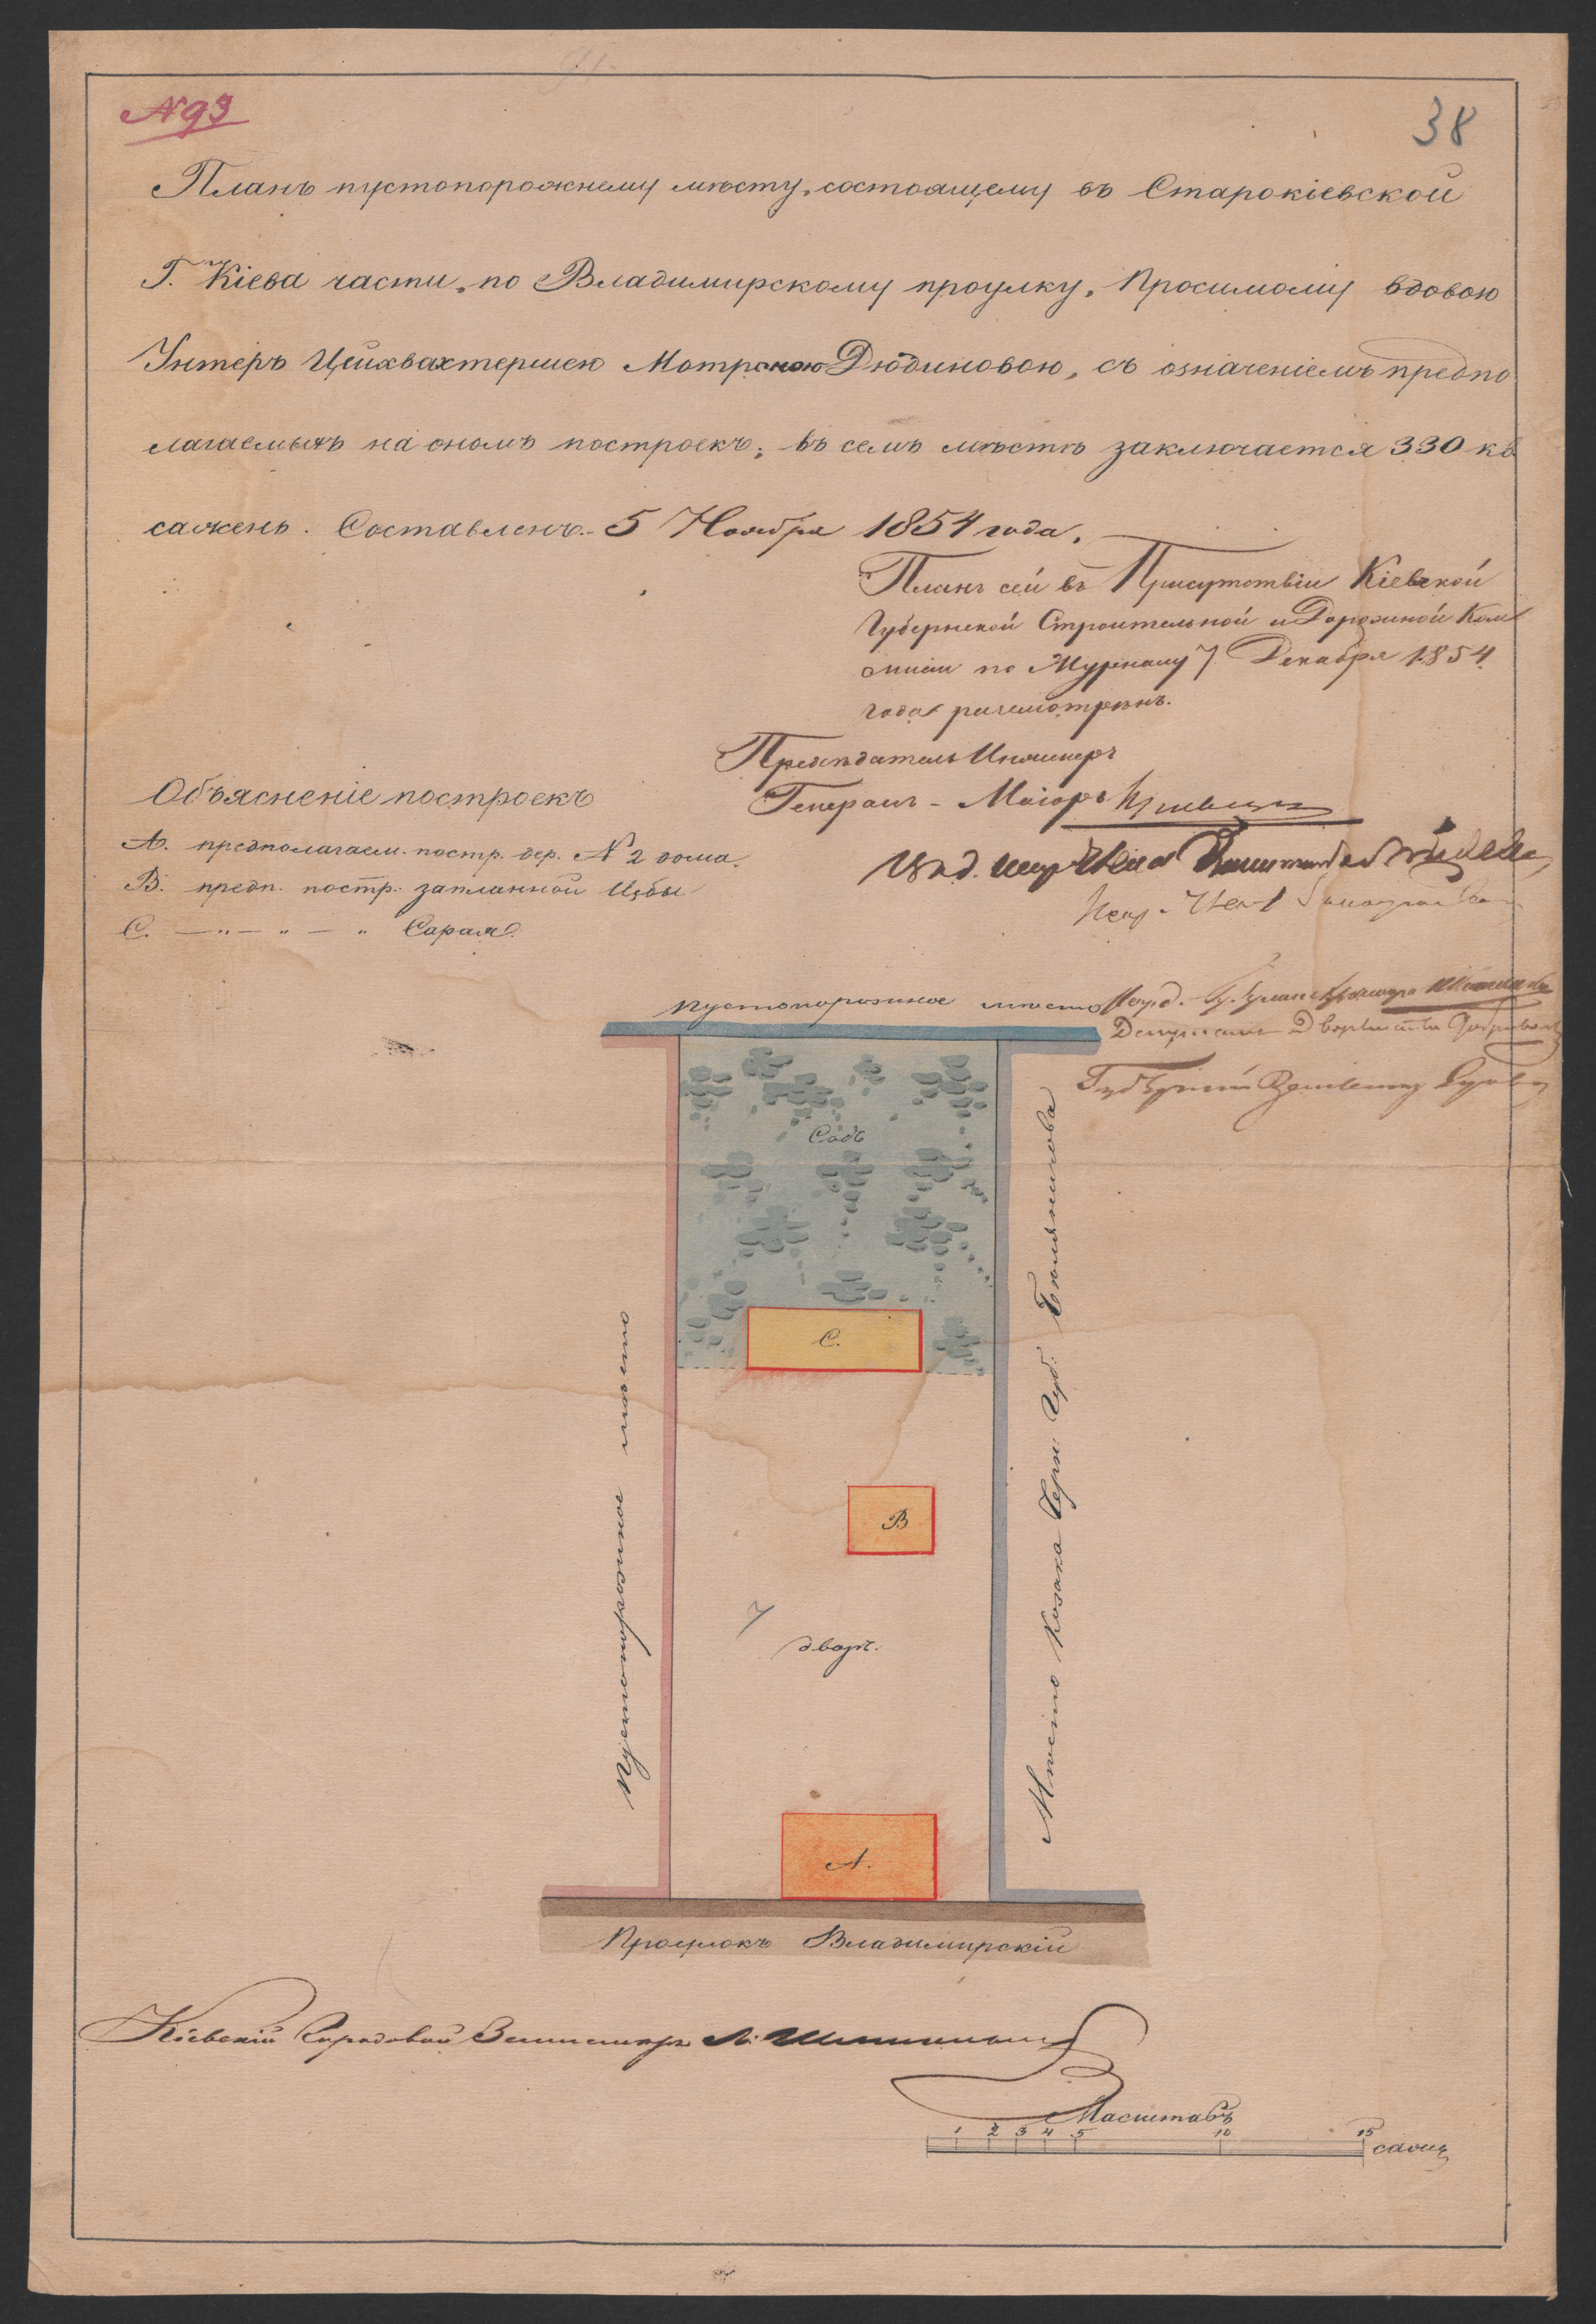 N 93
38
Планъ пустопорожнему мѣсту, состоящему въ Старокіевской
Г. Кіева части, по Владимирскому проулку, Просимому вдовою
Унтеръ Цейхвахтершею Мотроною Дюдиновою, съ означеніемъ предпо
лагаемыхъ на ономъ построекъ; въ семъ мѣстѣ заключается 330 кв
сажень. Составленъ 5 Ноября 1854 года.
Планъ сей въ Присутствіи Кіевской
Губернской Строительной и Дорожной Ком
мисіи по Журналу 7 Декабря 1854
года разсмотрѣнъ.
Предсѣдатель Инженеръ
Генералъ-Маіоръ
Объясненіе построекъ
A. предполагаем. постр. дер. N 2 дома.
B. предп. постр. Избы
C. — „ — „ — „ Сарая.
Пустопорожное мѣсто
Депутатъ Дворянства
Садъ
C.
B
7
дворъ.
A.
Пустопорожное мѣсто
Мѣсто Козака Черн. Губ.
Проулокъ Владимирскій
Кіевскій Городовой Землемѣръ
Масштабъ
1 2 3 4 5 10 15 саж.